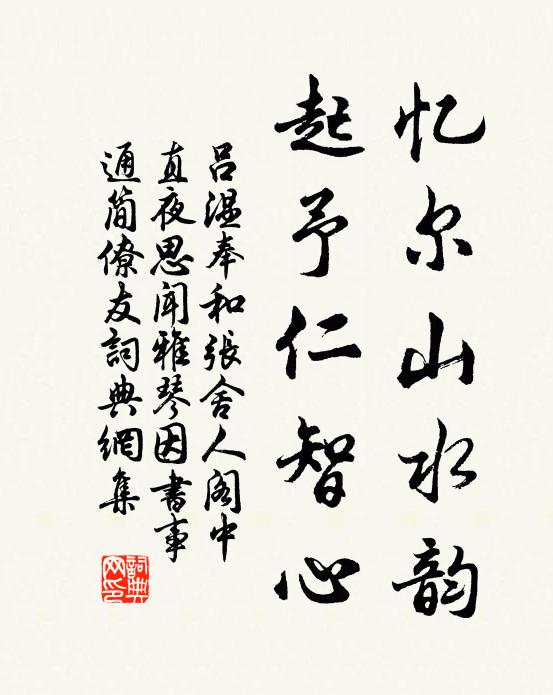 忆尔山水韵
起予仁智心
吕温奉和張舍人阁中
直夜思闻雅琴因書事
通简僚友詞典網集
詞典网印